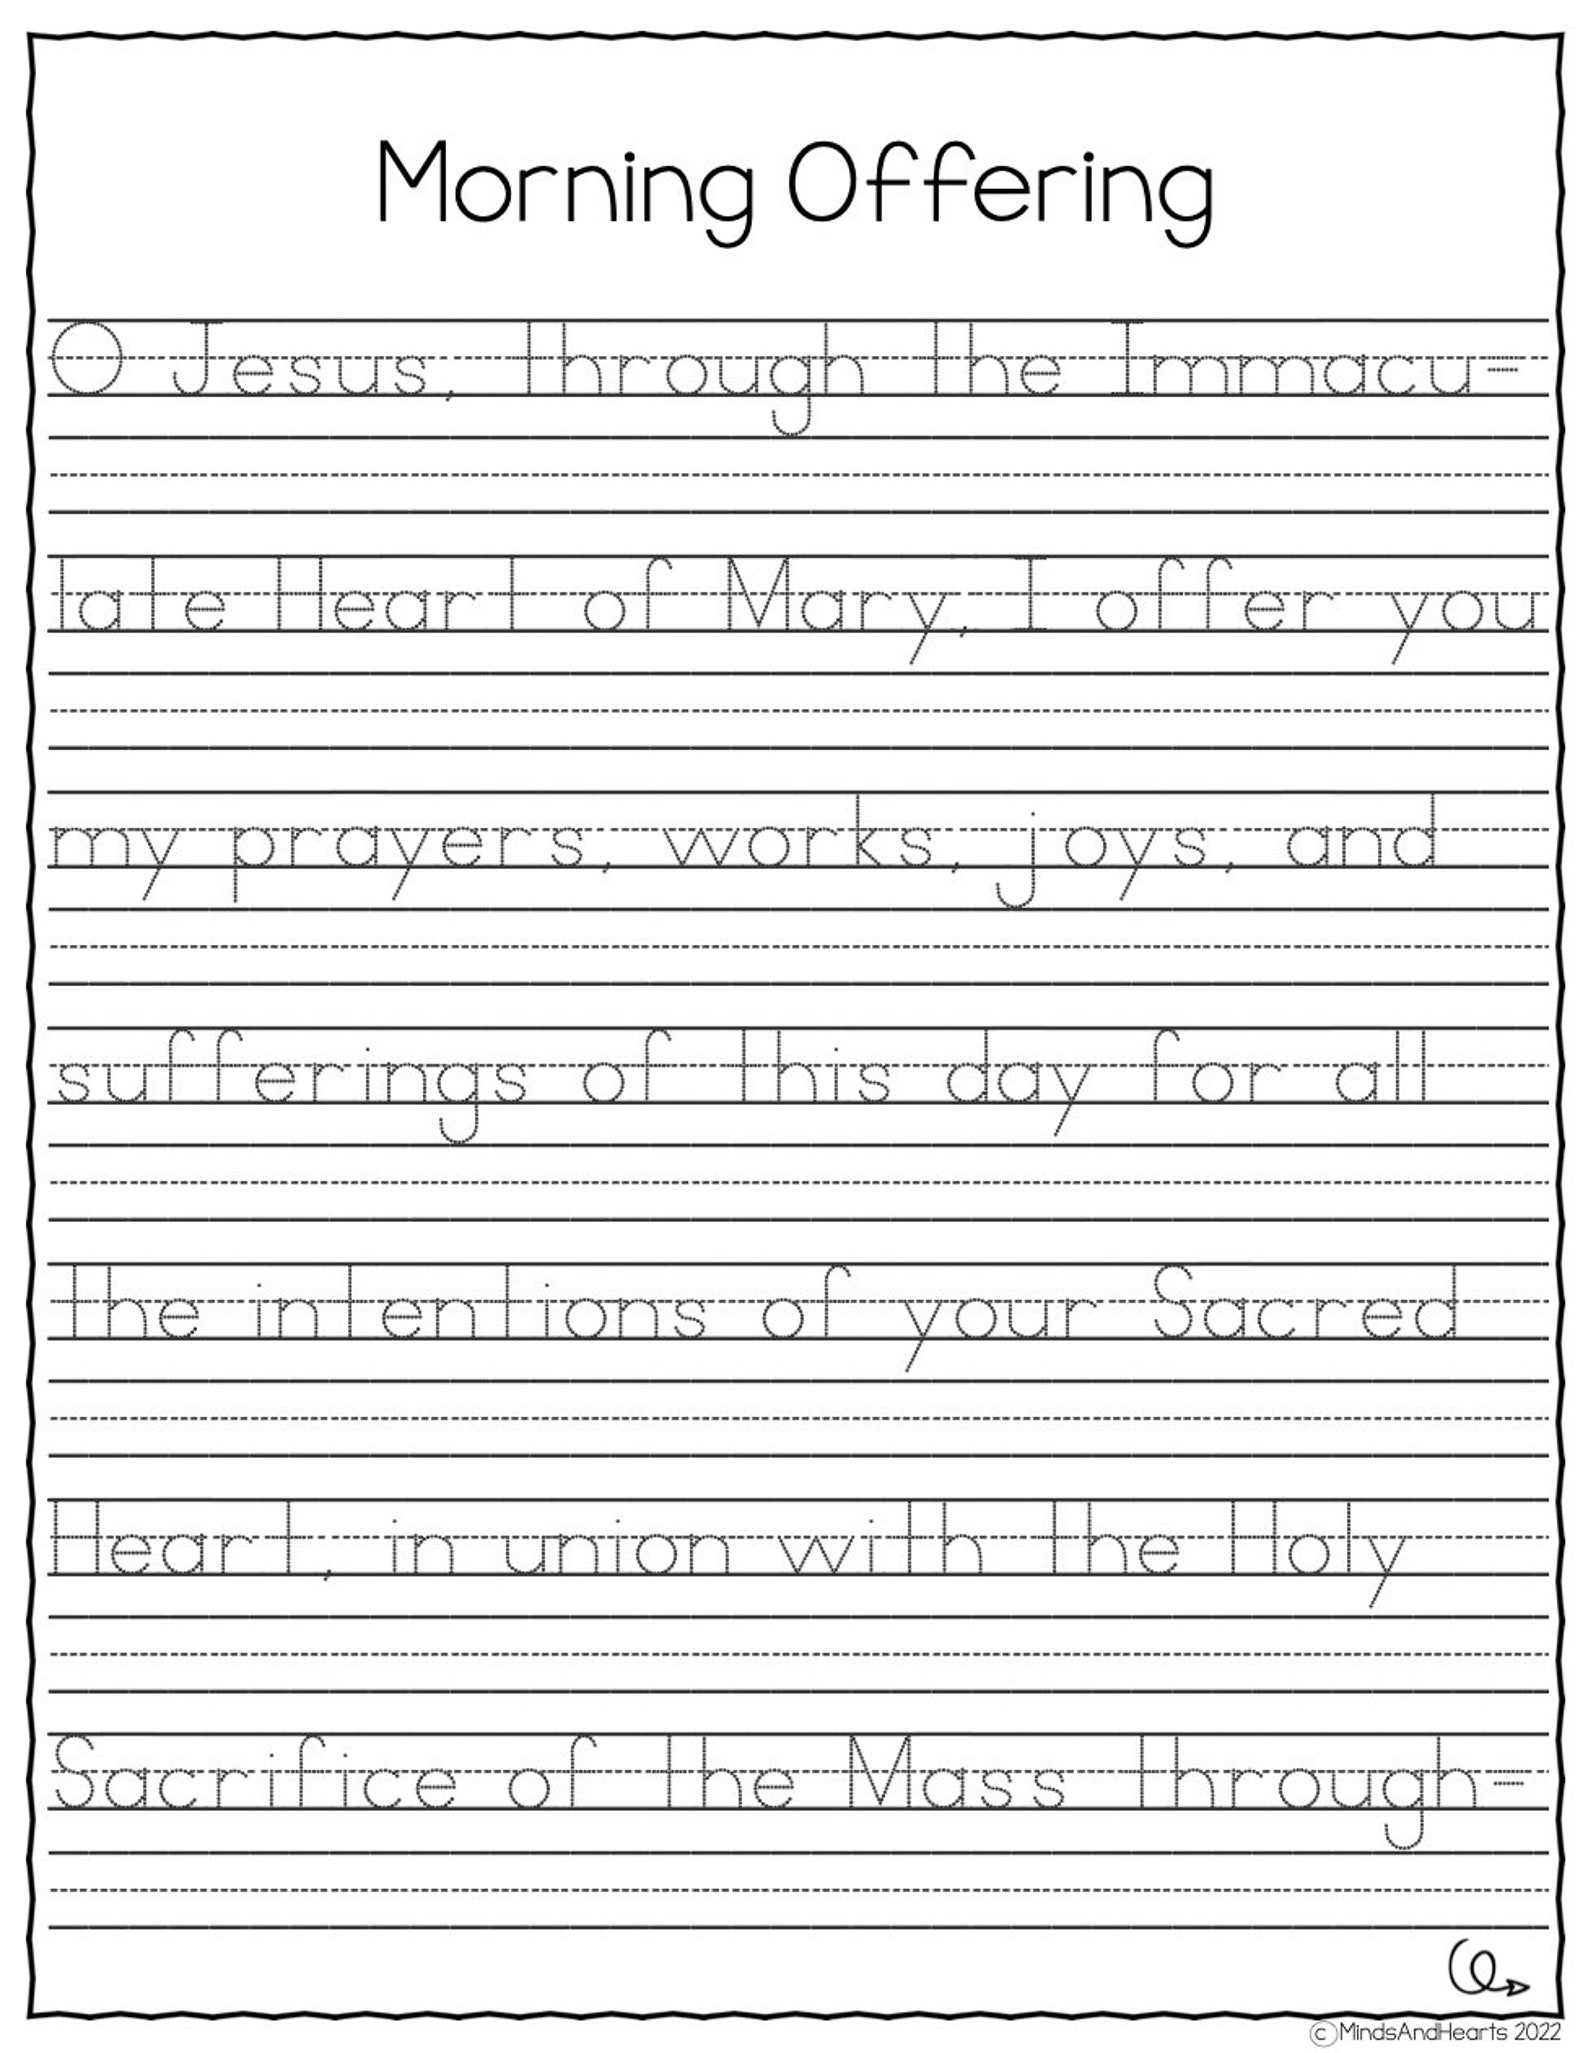 Morning Offering
O Jesus, through the Immacu-
late Heart of Mary, I offer you
my prayers, works, joys, and
sufferings of this day for all
the intentions of your Sacred
Heart, in union with the Holy
Sacrifice of the Mass through-
©MindsAndHearts 2022